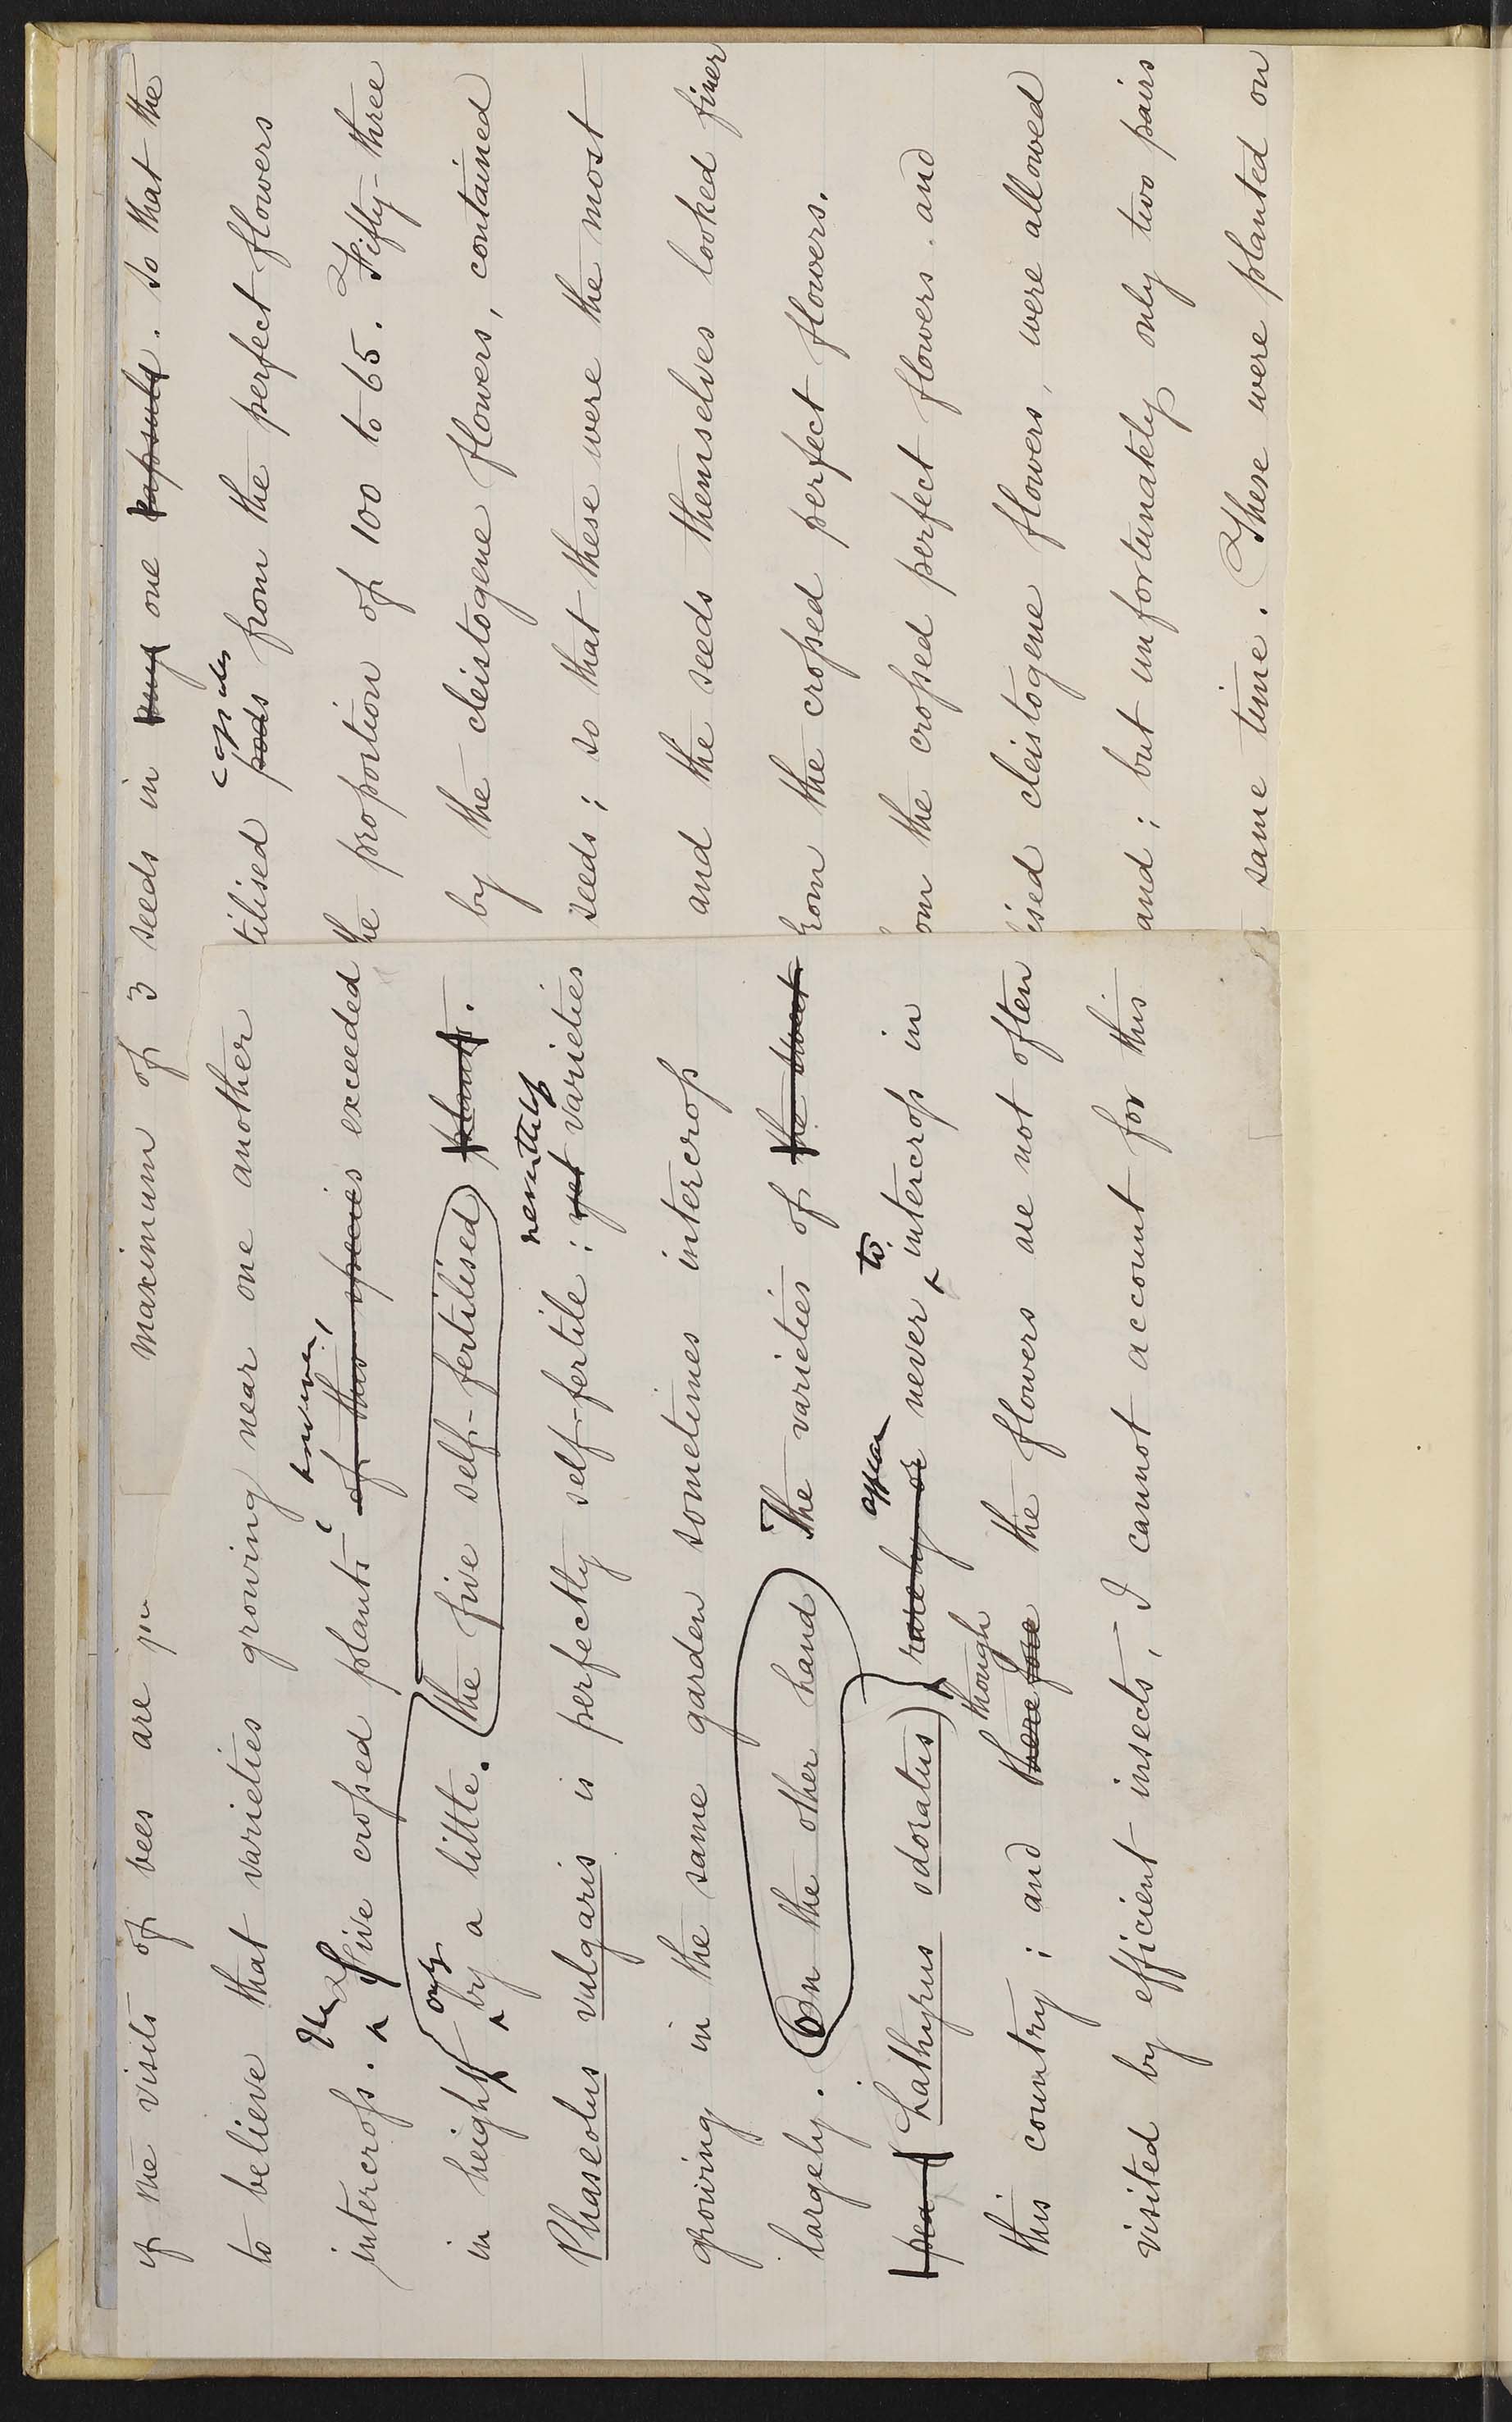 if the visits of bees are
to believe that varieties growing near one another
however,
intercross. The Five crossed plants of this species exceeded
only
in height by a little. (the five self-fertilised) plants.
nevertheless
Phaseolus vulgaris is perfectly self-fertile; yet varieties
growing in the same garden sometimes intercross
largely. (On the other hand) The varieties of the sweet
appear to
pea (Lathyrus odoratus) rarely or never intercross in
though
this country; and therefore the flowers are not often
visited by efficient insects, I cannot account for this
maximum of 3 seeds in any one capsule. so that the
capsules
tilised pods from the perfect flowers
the proportion of 100 to 65. Fifty-three
by the cleistogene flowers, contained
seeds; so that these were the most
and the seeds themselves looked finer
from the crossed perfect flowers.
om the crossed perfect flowers. and
ised cleistogene flowers, were allowed
and; but unfortunately only two pairs
same time. These were planted on